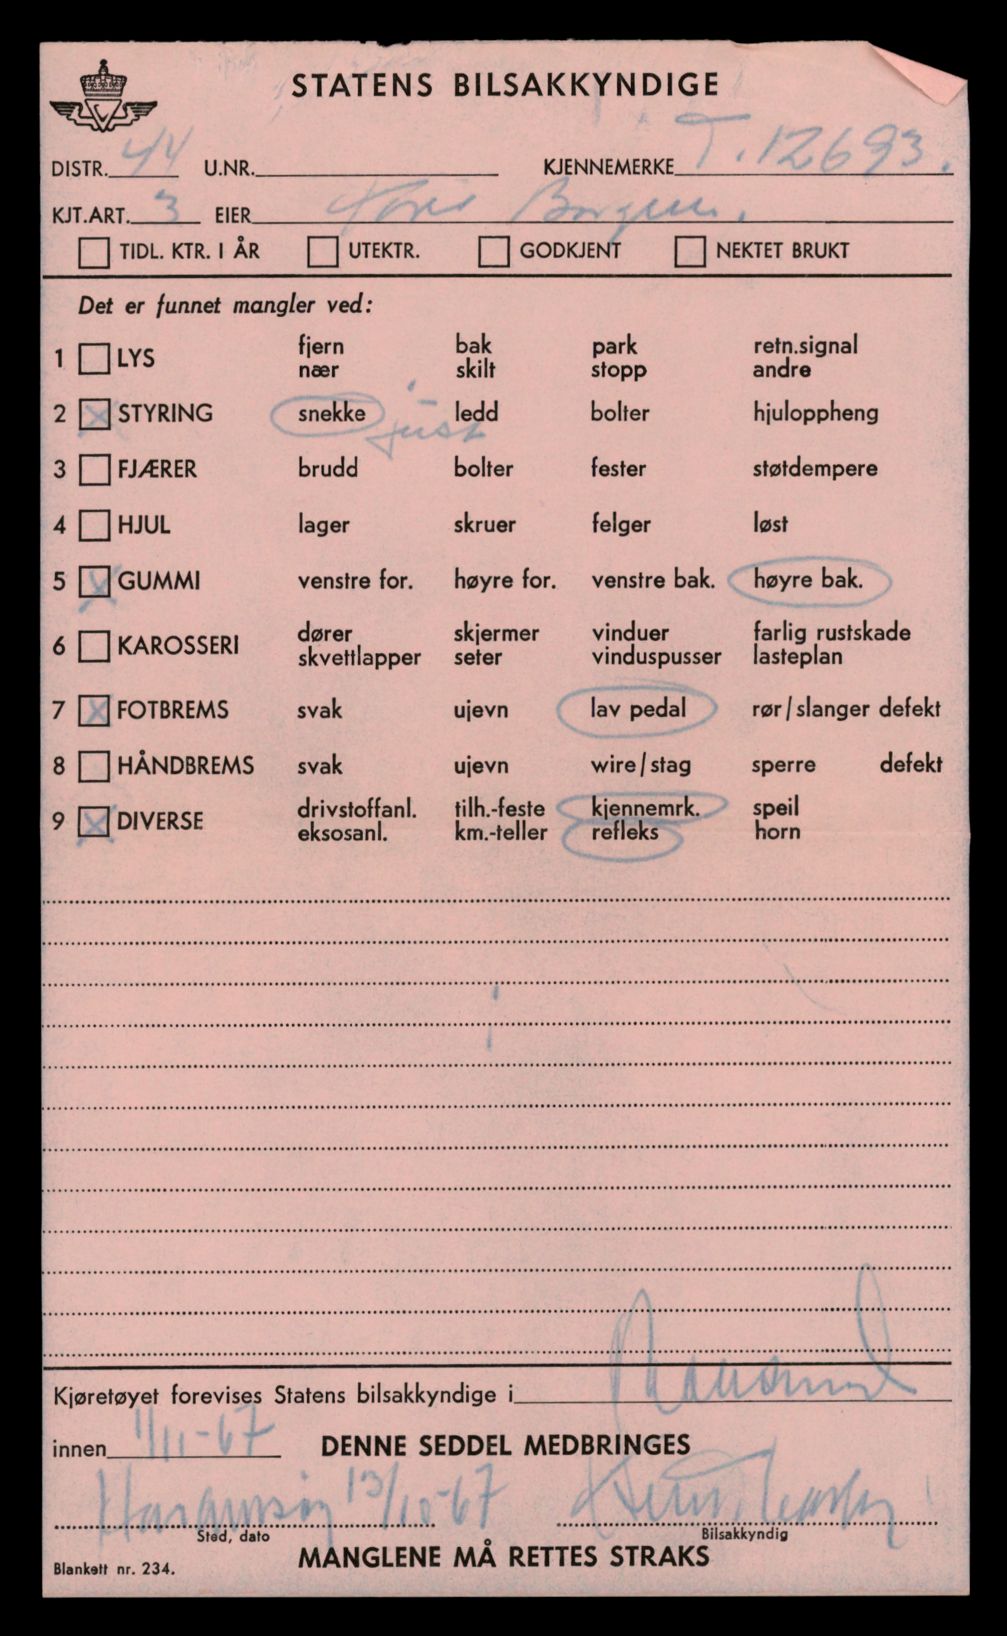 STATENS BILSAKKYNDIGE
DISTR. 44 U.NR. KJENNEMERKE T.12693.
KJT.ART. 3 EIER Borgen.
TIDL. KTR. I ÅR UTEKTR. GODKJENT NEKTET BRUKT
Det er funnet mangler ved:
1 LYS fjern bak park retn.signal
nær skilt stopp andre
2 X STYRING snekke just ledd bolter hjuloppheng
3 FJÆRER brudd bolter fester støtdempere
4 HJUL lager skruer felger løst
5 X GUMMI venstre for. høyre for. venstre bak. høyre bak.
6 KAROSSERI dører skjermer vinduer farlig rustskade
skvettlapper seter vinduspusser lasteplan
7 X FOTBREMS svak ujevn lav pedal rør/slanger defekt
8 HÅNDBREMS svak ujevn wire/stag sperre defekt
9 X DIVERSE drivstoffanl. tilh.-feste kjennemrk. speil
eksosanl. km.-teller refleks horn
Kjøretøyet forevises Statens bilsakkyndige i
innen 1/11-67 DENNE SEDDEL MEDBRINGES
13/10-67
Sted, dato Bilsakkyndig
MANGLENE MÅ RETTES STRAKS
Blankett nr. 234.